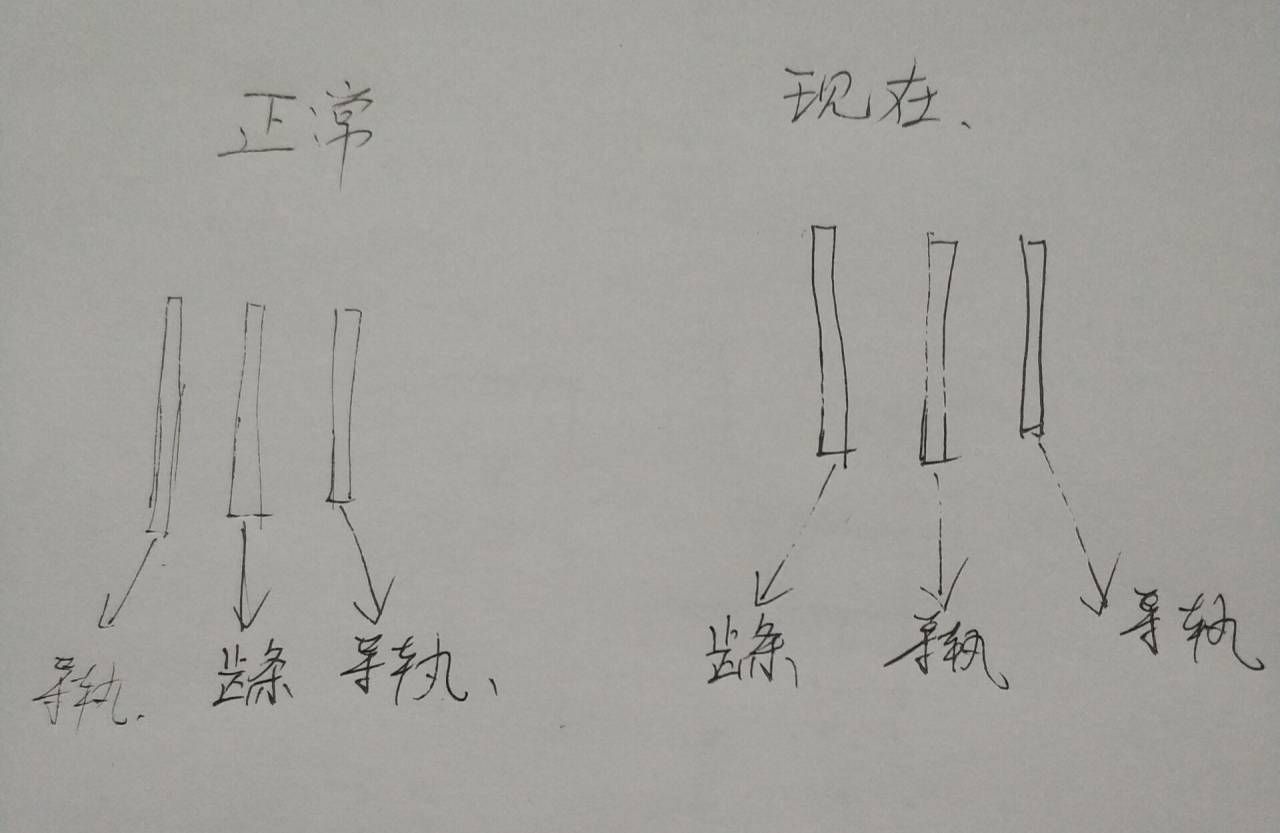 正常
现在、
导轨.
齿条
导轨、
齿条
导轨
导轨